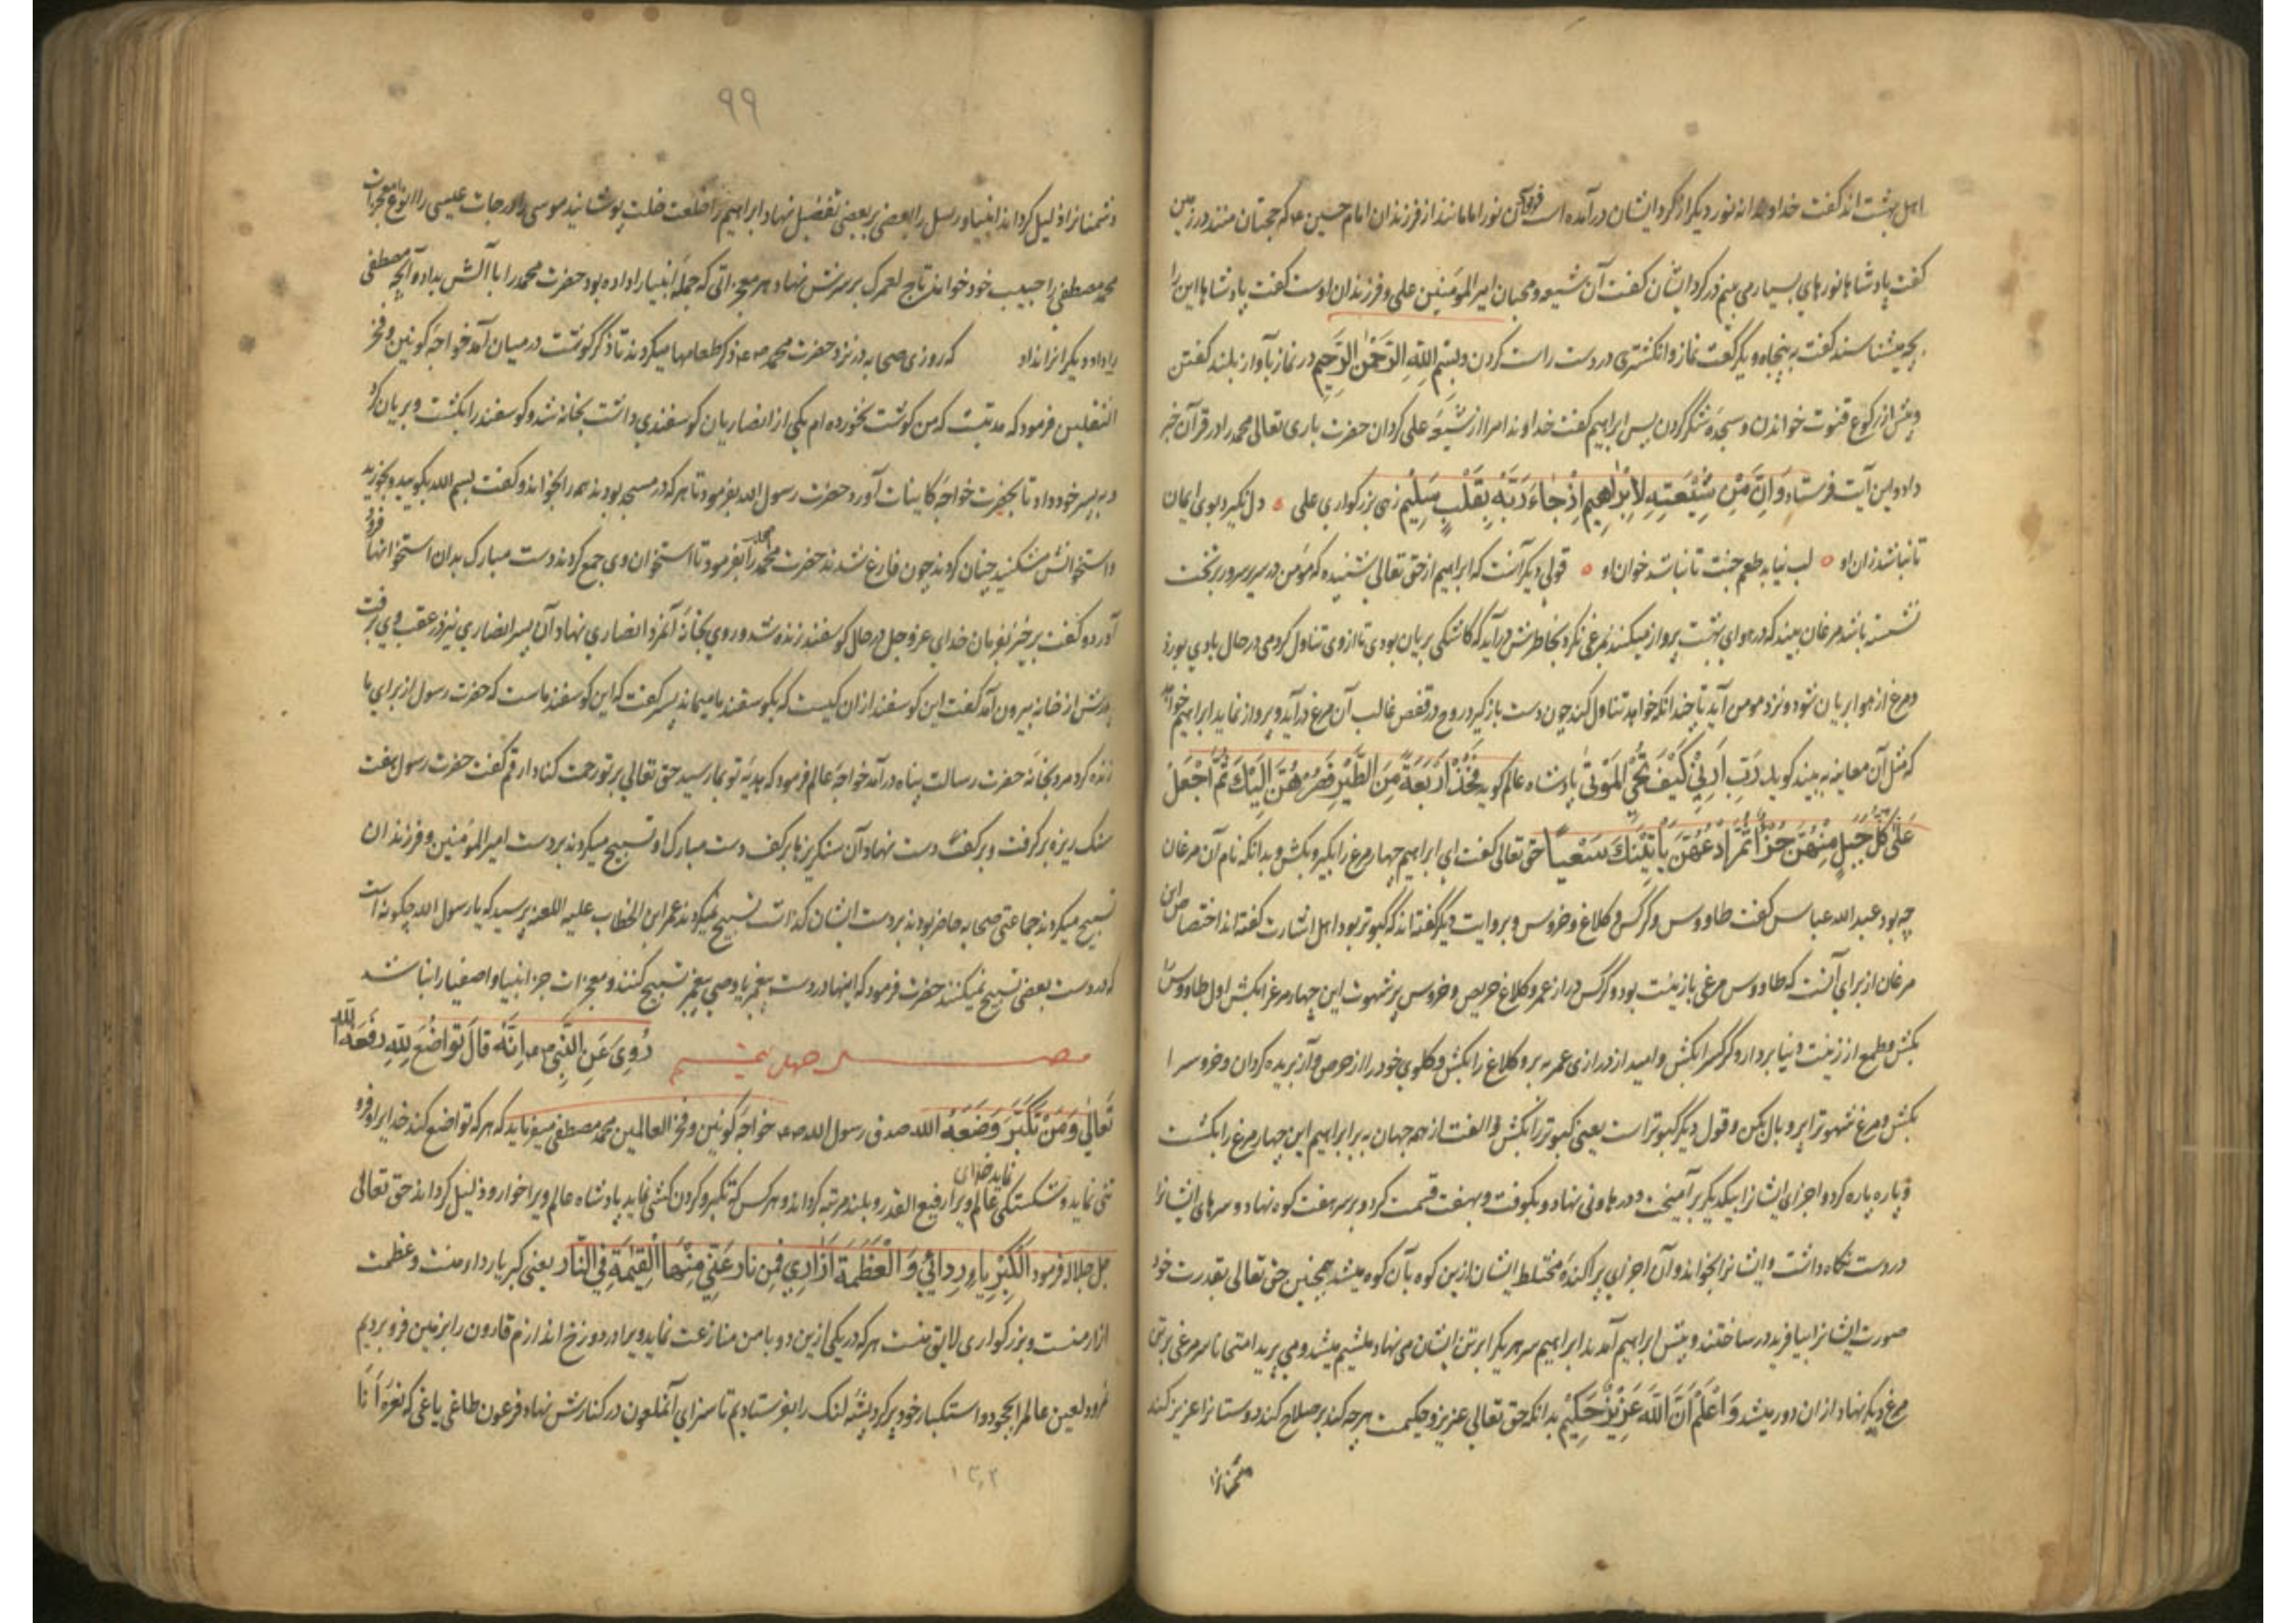 اهل بهشت اند گفت خداوندا نه نور دیگر از گرد ایشان در آمده است فرمود آن نور امامانند از فرزندان امام حسین ع که حجتان منند در زمین
گفت پادشاها نورهای بسیار می بینم در گرد ایشان گفت آن شیعه و محبان امیر المؤمنین علی و فرزندان اوست گفت پادشاها این را
بچه میشناسند گفت به پنجاه و یک رکعت نماز و انگشتری در دست راست کردن و بِسْمِ اللَّهِ الرَّحْمَنِ الرَّحِيمِ در نماز بآواز بلند گفتن
و پیش از رکوع قنوت خواندن و سجده شکر کردن پس ابراهیم گفت خداوندا مرا از شیعه علی گردان حضرت باری تعالی محمد را در قرآن خبر
داد و این آیت فرستاد وَاِنَّ مِنْ شِيْعَتِهِ لَاِبْرٰهِيمَ اِذْ جَاءَ رَبَّهُ بِقَلْبٍ سَلِيْمٍ زهی بزرگواری علی دل نگیرد بوی ایمان
تا نباشد زان او لب نیابد طعم جنت تا نباشد خوان او قولی دیگر آنست که ابراهیم از حق تعالی شنیده که مؤمن در سریر سرور بر تخت
نشسته باشد مرغان بیند که در هوای بهشت پرواز میکنند بمرغی نگرد بخاطرش در آید که کاشکی بریان بودی تا از وی تناول کردمی در حال بادی بوزد
و مرغ از هوا بریان شود و نزد مومن آید تا چندانکه خواهد تناول کند چون دست باز گیرد روح در قفص غالب آن مرغ در آید و پرواز نماید ابراهیم خواست
که مثل آن معاینه به بیند گوید رَبِّ اَرِنِيْ كَيْفَ تُحْيِ الْمَوْتٰى پادشاه عالم گوید فَخُذْ اَرْبَعَةً مِنَ الطَّيْرِ فَصُرْهُنَّ اِلَيْكَ ثُمَّ اجْعَلْ
عَلٰى كُلِّ جَبَلٍ مِنْهُنَّ جُزْءًا ثُمَّ ادْعُهُنَّ يَأْتِيْنَكَ سَعْيًا حق تعالی گفت ای ابراهیم چهار مرغ را بگیر و بکش و بدانکه نام آن مرغان
چه بود عبد الله عباس گفت طاووس و کرکس و کلاغ و خروس و بروایت دیگر گفته اند که کبوتر بود اهل اشارت گفته اند اختصاص این
مرغان از برای آنست که طاووس مرغی با زینت بود و کرکس دراز عمر و کلاغ حریص و خروس پر شهوت این چهار مرغ را بکش اول طاووس را
بکش و طمع از زینت دنیا بردار و کرکس را بکش و امید از درازی عمر ببر و کلاغ را بکش و گلوی خود را از حرص و آز بریده گردان و خروس را
بکش و مرغ شهوترا پر و بال بکن و قول دیگر کبوتر است یعنی کبوتر را بکش و الفت از همه جهان ببر ابراهیم این چهار مرغ را بکشت
و پاره پاره کرد و اجزای ایشانرا بیکدیگر بر آمیخت و در هاونی نهاد و بکوفت و بهفت قسمت کرد و بر سر هفت کوه نهاد و سرهای ایشانرا
در دست نگاه داشت و ایشانرا بخواند و آن اجزای پراکنده مختلط ایشان ازین کوه بآن کوه میشد همچنین حق تعالی بقدرت خود
صورت ایشانرا بیافرید در ساختند و پیش ابراهیم آمدند ابراهیم سر هر یک را بر تن ایشان می نهاد ملتئم میشد و می پرید امتحانا سر مرغی بر تن
مرغ دیگر نهاد از ان دور میشد وَاعْلَمْ اَنَّ اللّٰهَ عَزِيْزٌ حَكِيْمٌ بدانکه حق تعالی عزیز و حکیمست هر چه کند بر صلاح کند دوستانرا عزیز کند
دشمنانرا
۹۹
دشمنانرا ذلیل گرداند انبیا و رسل را بعضی بر بعضی تفضیل نهاد ابراهیم را خلعت خلت پوشانید موسی را درجات عیسی را انواع معجزات
محمد مصطفی را حبیب خود خواند تاج لعمرک بر سرش نهاد هر معجزاتی که جمله انبیا را داده بود حضرت محمد را با آلش بداد و آنچه مصطفی
را داد دیگرانرا نداد که روزی صحابه در نزد حضرت محمد صم ذکر طعامها میکردند تا ذکر گوشت در میان آمد خواجه کونین و فخر
الثقلین فرمود که مدتیست که من گوشت نخورده ام یکی از انصاریان گوسفندی داشت بخانه شد و گوسفند را بکشت و بریان کرد
و به پسر خود داد تا بحضرت خواجه کاینات آورد حضرت رسول الله بفرمود تا هر که در مسجد بودند همه را بخواندند و گفت بسم الله بگویید و بخورید
و استخوانش مشکنید چنان کردند چون فارغ شدند حضرت محمد بفرمود تا استخوان وی جمع کردند دست مبارک بدان استخوانها فرود
آورد و گفت برخیز بفرمان خدای عز و جل در حال گوسفند زنده شد و روی بخانه آنمرد انصاری نهاد آن پسر انصاری نیز در عقب وی برفت
پدرش از خانه بیرون آمد گفت این گوسفند از ان کیست که بگوسفند ما میماند پسر گفت که این گوسفند ماست که حضرت رسول از برای ما
زنده کرد مرد بخانه حضرت رسالت پناه در آمد خواجه عالم فرمود که هدیه تو بما رسید حق تعالی بر تو رحمت کناد ارقم گفت حضرت رسول هفت
سنگ ریزه بر گرفت و بر کف دست نهاد آن سنگریزها بر کف دست مبارک او تسبیح میکردند بر دست امیر المؤمنین و فرزندان
تسبیح میکردند جماعتی صحابه حاضر بودند بر دست ایشان گذاشت تسبیح نمیکردند عمر ابن الخطاب علیه اللعنه پرسید که یا رسول الله چگونه است
که در دست بعضی تسبیح نمیکنند حضرت فرمود که اینها در دست پیغمبر یا وصی پیغمبر تسبیح کنند و معجزات جز انبیا و اصفیا را نباشد
رُوِيَ عَنِ النَّبِيِّ صم اِنَّهُ قَالَ تَوَاضَعَ لِلّٰهِ رَفَعَهُ اللّٰه
تَعَالٰى وَمَنْ تَكَبَّرَ وَضَعَهُ اللّٰه صدق رسول الله صم خواجه کونین و فخر العالمین محمد مصطفی میفرماید که هر که تواضع کند خدایرا و فرو
تنی نماید و شکستگی نماید خدای عالم ویرا رفیع القدر و بلند مرتبه گرداند و هر کس که تکبر و گردن کشی نماید پادشاه عالم ویرا خوار و ذلیل گرداند حق تعالی
جل جلاله فرمود اَلْكِبْرِيَاءُ رِدَائِيْ وَالْعَظَمَةُ اِزَارِيْ فَمَنْ نَازَعَنِيْ مِنْهَا الْقِيٰمَةِ فِي النَّارِ یعنی کبریا رداء منست و عظمت
ازار منست و بزرگواری لایق منست هر که در یکی ازین دو با من منازعت نماید ویرا در دوزخ اندازم قارون را بزمین فرو بردیم
نمرود لعین عالم را بجحود و استکبار خود پر کرد پشه لنگ را بفرستادیم تا سزای آنملعون در کنارش نهاد فرعون طاغی یاغی که نعره اَنَا